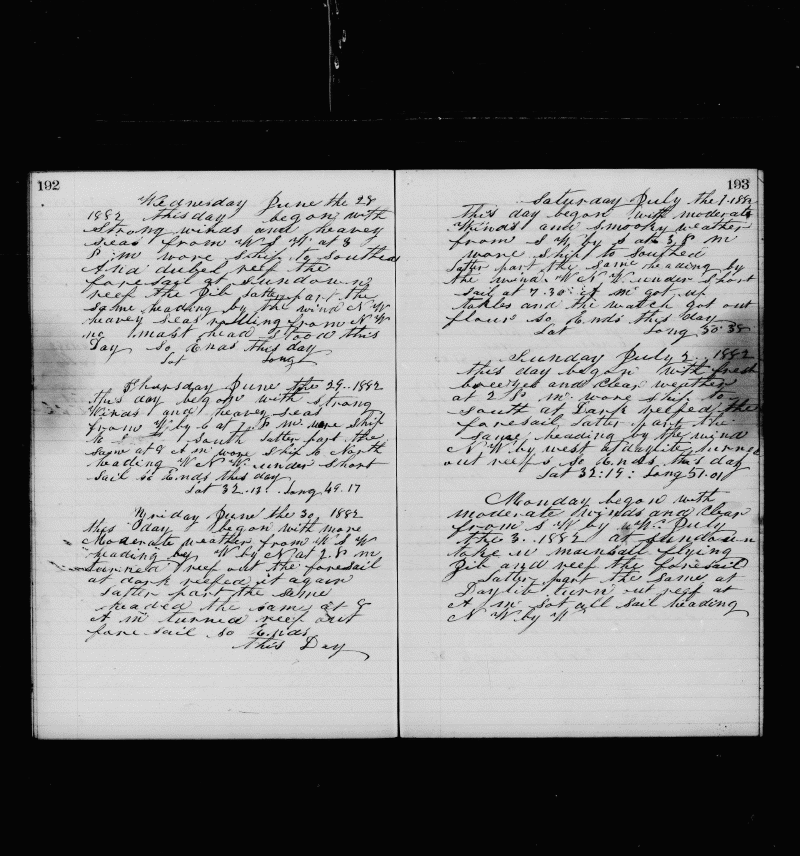 192
Wednesday June the 28
1882 this day began with
strong winds and heavey
seas from W S W at 3
P m wore ship to Southed
And dubel reef the
foresail at sundown
reef the Jib Latter part the
same heading by the wind N W
heavey seas rolling from N W
no mast head stood this
Day so Ends this day
Lat Long
Thursday June the 29. 1882
this day began with strong
Winds and heavey seas
from W by 6 at P m. wore ship
to South Latter part the
same at 8 A m wore ship to North
heading W N W. under short
sail so Ends this day
Lat 32.13: Long 49.17
Friday June the 30, 1882
this day began with more
Moderate weather from W S W
heading by W by N at 2 P m
turned reef out the foresail
at dark reefed it again
Latter part the same
headed the same at 8
A m turned reef out
fore sail so Ends
this Day
193
Saturday July the 1. 1882
this day began with moderate
Winds and smooky weather
from S W by S at 3 P m
wore ship to Southed
Latter part the same heading by
the wind W N W. under short
sail at 7.30 A m got up
takles and the watch got out
flour so Ends this day
Lat Long 50.38
Sunday July 2. 1882
this day began with fresh
breezes and Clear weather
at 2 P m. wore ship to
South at Dark reefed the
foresail Latter part the
same heading by the wind
N W by west at daylite turned
out reefs so Ends this day
Lat 32:19: Long 51.01
Monday began with
moderate winds and Clear
from S W by W. July
the 3. 1882 at sundown
take in mainsail flying
Jib and reef the foresail
Latter part the same at
Daylite turn out reef at
A m Sot all sail heading
N W by W